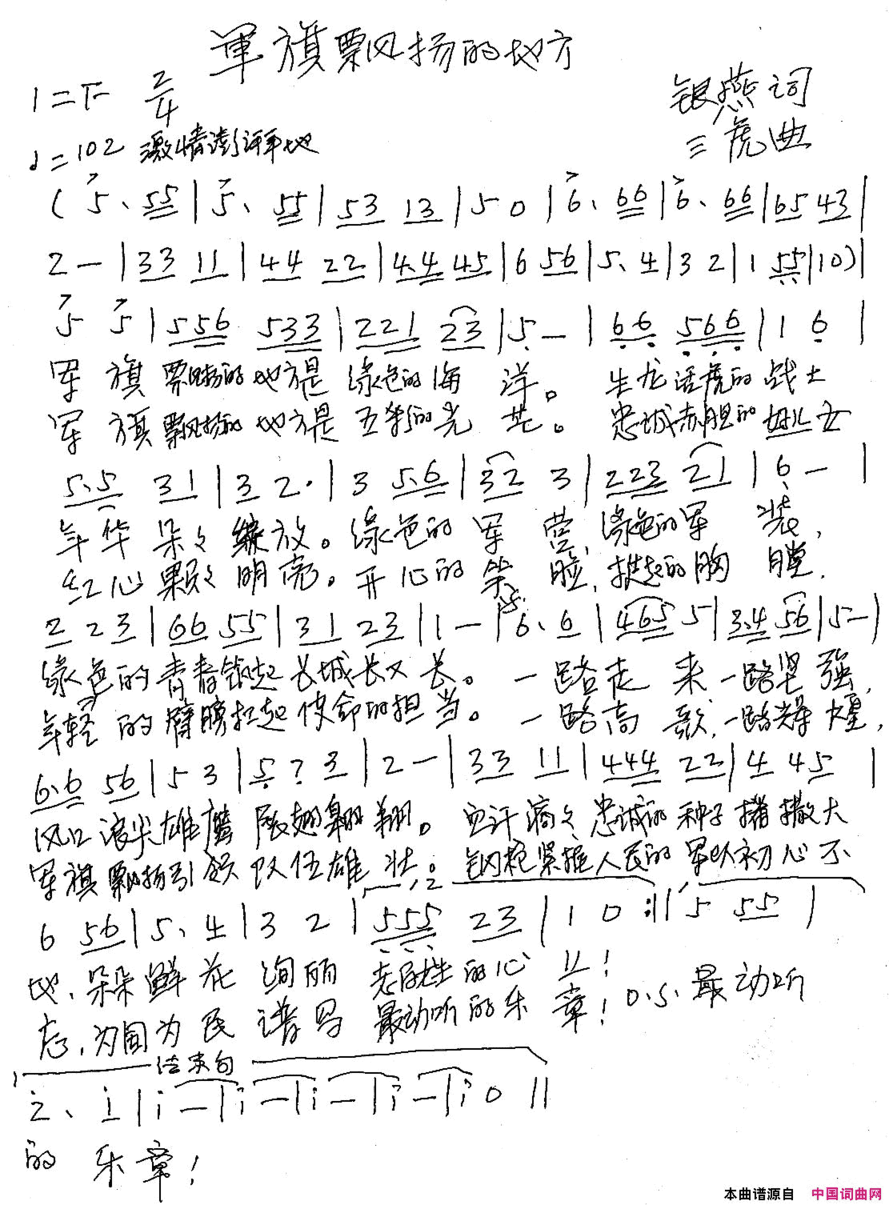 軍旗飘风扬的地方
1=F 2/4
银燕词
♩=102 激情澎湃地
三虎曲
(5、55|5、55|53 13|5 0|6、66|6、66|65 43|
2-|33 11|44 22|4.4 45|6 56|5、4|3 2|1 55|10)|
5 5|556 533|221 23|5-|66 566|1 6|
军旗飘扬的地方是绿色的海洋。生龙活虎的战士
军旗飘扬的地方是五彩的光芒。忠诚赤胆的好儿女
5.5 31|3 2·|3 5.6|32 3|223 21|6-|
年华朵々绽放。绿色的军营,绿色的军装,
红心颗々明亮。开心的笑脸,挺起的胸膛,
2 23|66 55|31 23|1-|6、6|465 5|3.4 56|5-|
绿色的青春筑起长城长又长。一路走来一路坚强,
年轻的臂膀扛起使命的担当。一路高歌,一路辉煌,
6.6 56|5 3|5 2 3|2-|33 11|444 22|4 45|
风口浪尖雄鹰展翅翱翔。血汗滴々忠诚的种子播撒大
军旗飘扬引领队伍雄壮。钢枪紧握人民的军队初心不
6 56|5、4|3 2|555 23|1 0:||5 55|
地、朵朵鲜花绚丽老百姓的心
忘,为国为民谱写最动听的乐章!D.S.最动听
结束句
2、1|1-|1-|1-|1-|1 0||
的乐章!
本曲谱源自 中国词曲网